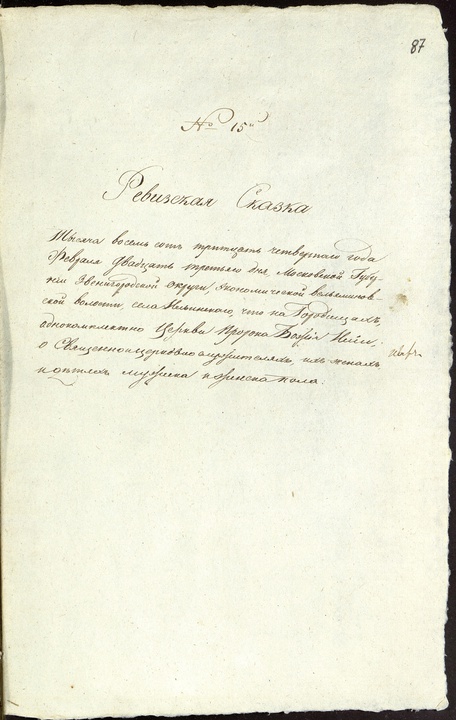 87
№ 15й
Ревизская Сказка
Тысяча восемь сотъ тритцать четвертаго года
Февраля двадцать третьяго дня, Московской Губер
ніи Звенигородской округи, Экономической Вельяминов
ской волости, села Ильинскаго, что на Городищахъ,
однокомплектно Церкви Пророка Божія Иліи,
о Священноцерковнослужителяхъ, ихъ женахъ
и дѣтяхъ мужеска и женска пола.